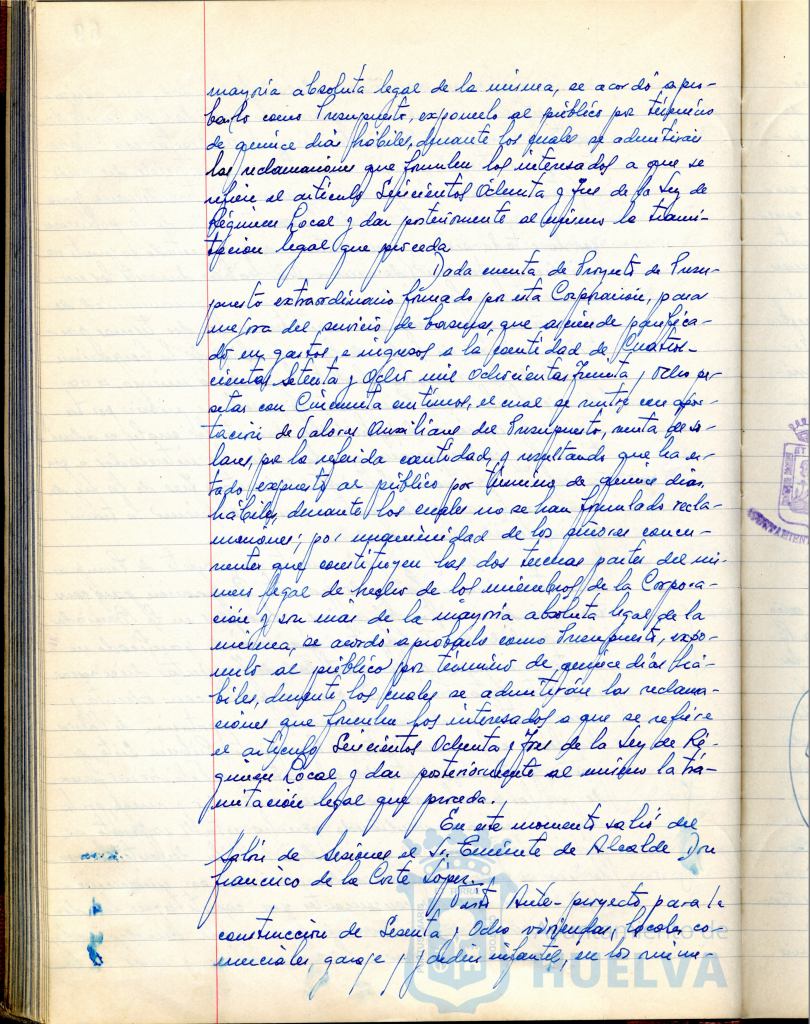 mayoría absoluta legal de la misma, se acordó apro-
barlo como Presupuesto, exponerlo al público por término
de quince días hábiles, durante los cuales se admitirán
las reclamaciones que formulen los interesados a que se
refiere el artículo Seiscientos Ochenta y Tres de la Ley de
Régimen Local y dar posteriormente al mismo la trami-
tación legal que proceda
Dada cuenta de Proyecto de Presu-
puesto extraordinario formado por esta Corporación, para
mejora del servicio de basuras, que asciende
en gastos, e ingresos a la cantidad de Cuatro-
cientas Setenta y Ocho mil Ochocientas Treinta y Ocho pe-
setas con Cincuenta céntimos, el cual se nutre con apor-
tación de Valores Auxiliares del Presupuesto, venta de so-
lares, por la referida cantidad, y resultando que ha es-
tado expuesto al público por término de quince días
hábiles, durante los cuales no se han formulado recla-
maciones; por unanimidad de los señores concu-
rrentes que constituyen las dos terceras partes del nú-
mero legal de hecho de los miembros de la Corpora-
ción y son más de la mayoría absoluta legal de la
misma, se acordó aprobarlo como Presupuesto, expo-
nerlo al público por término de quince días há-
biles, durante los cuales se admitirán las reclama-
ciones que formulen los interesados a que se refiere
el artículo Seiscientos Ochenta y Tres de la Ley de Ré-
gimen Local y dar posteriormente al mismo la tra-
mitación legal que proceda.
En este momento salió del
Salón de Sesiones el Sr. Teniente de Alcalde Don
Francisco de la Corte López.
Visto Ante-proyecto para la
construcción de Sesenta y Ocho viviendas, locales co-
merciales, garaje y jardín infantil, en los mismo-
Ayuntamiento de
HUELVA